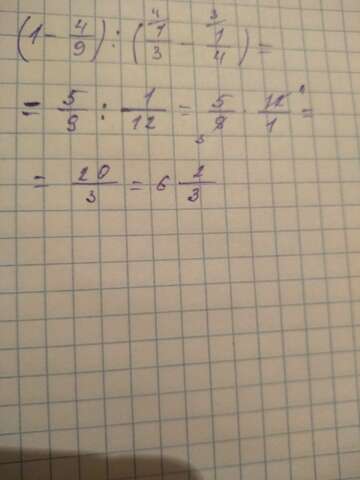 (1 - 4/9) : (⁴⁄1/3 - ³⁄1/4) =
= 5/9 : 1/12 = 5/9 3 · 12 4/1 =
= 20/3 = 6 2/3